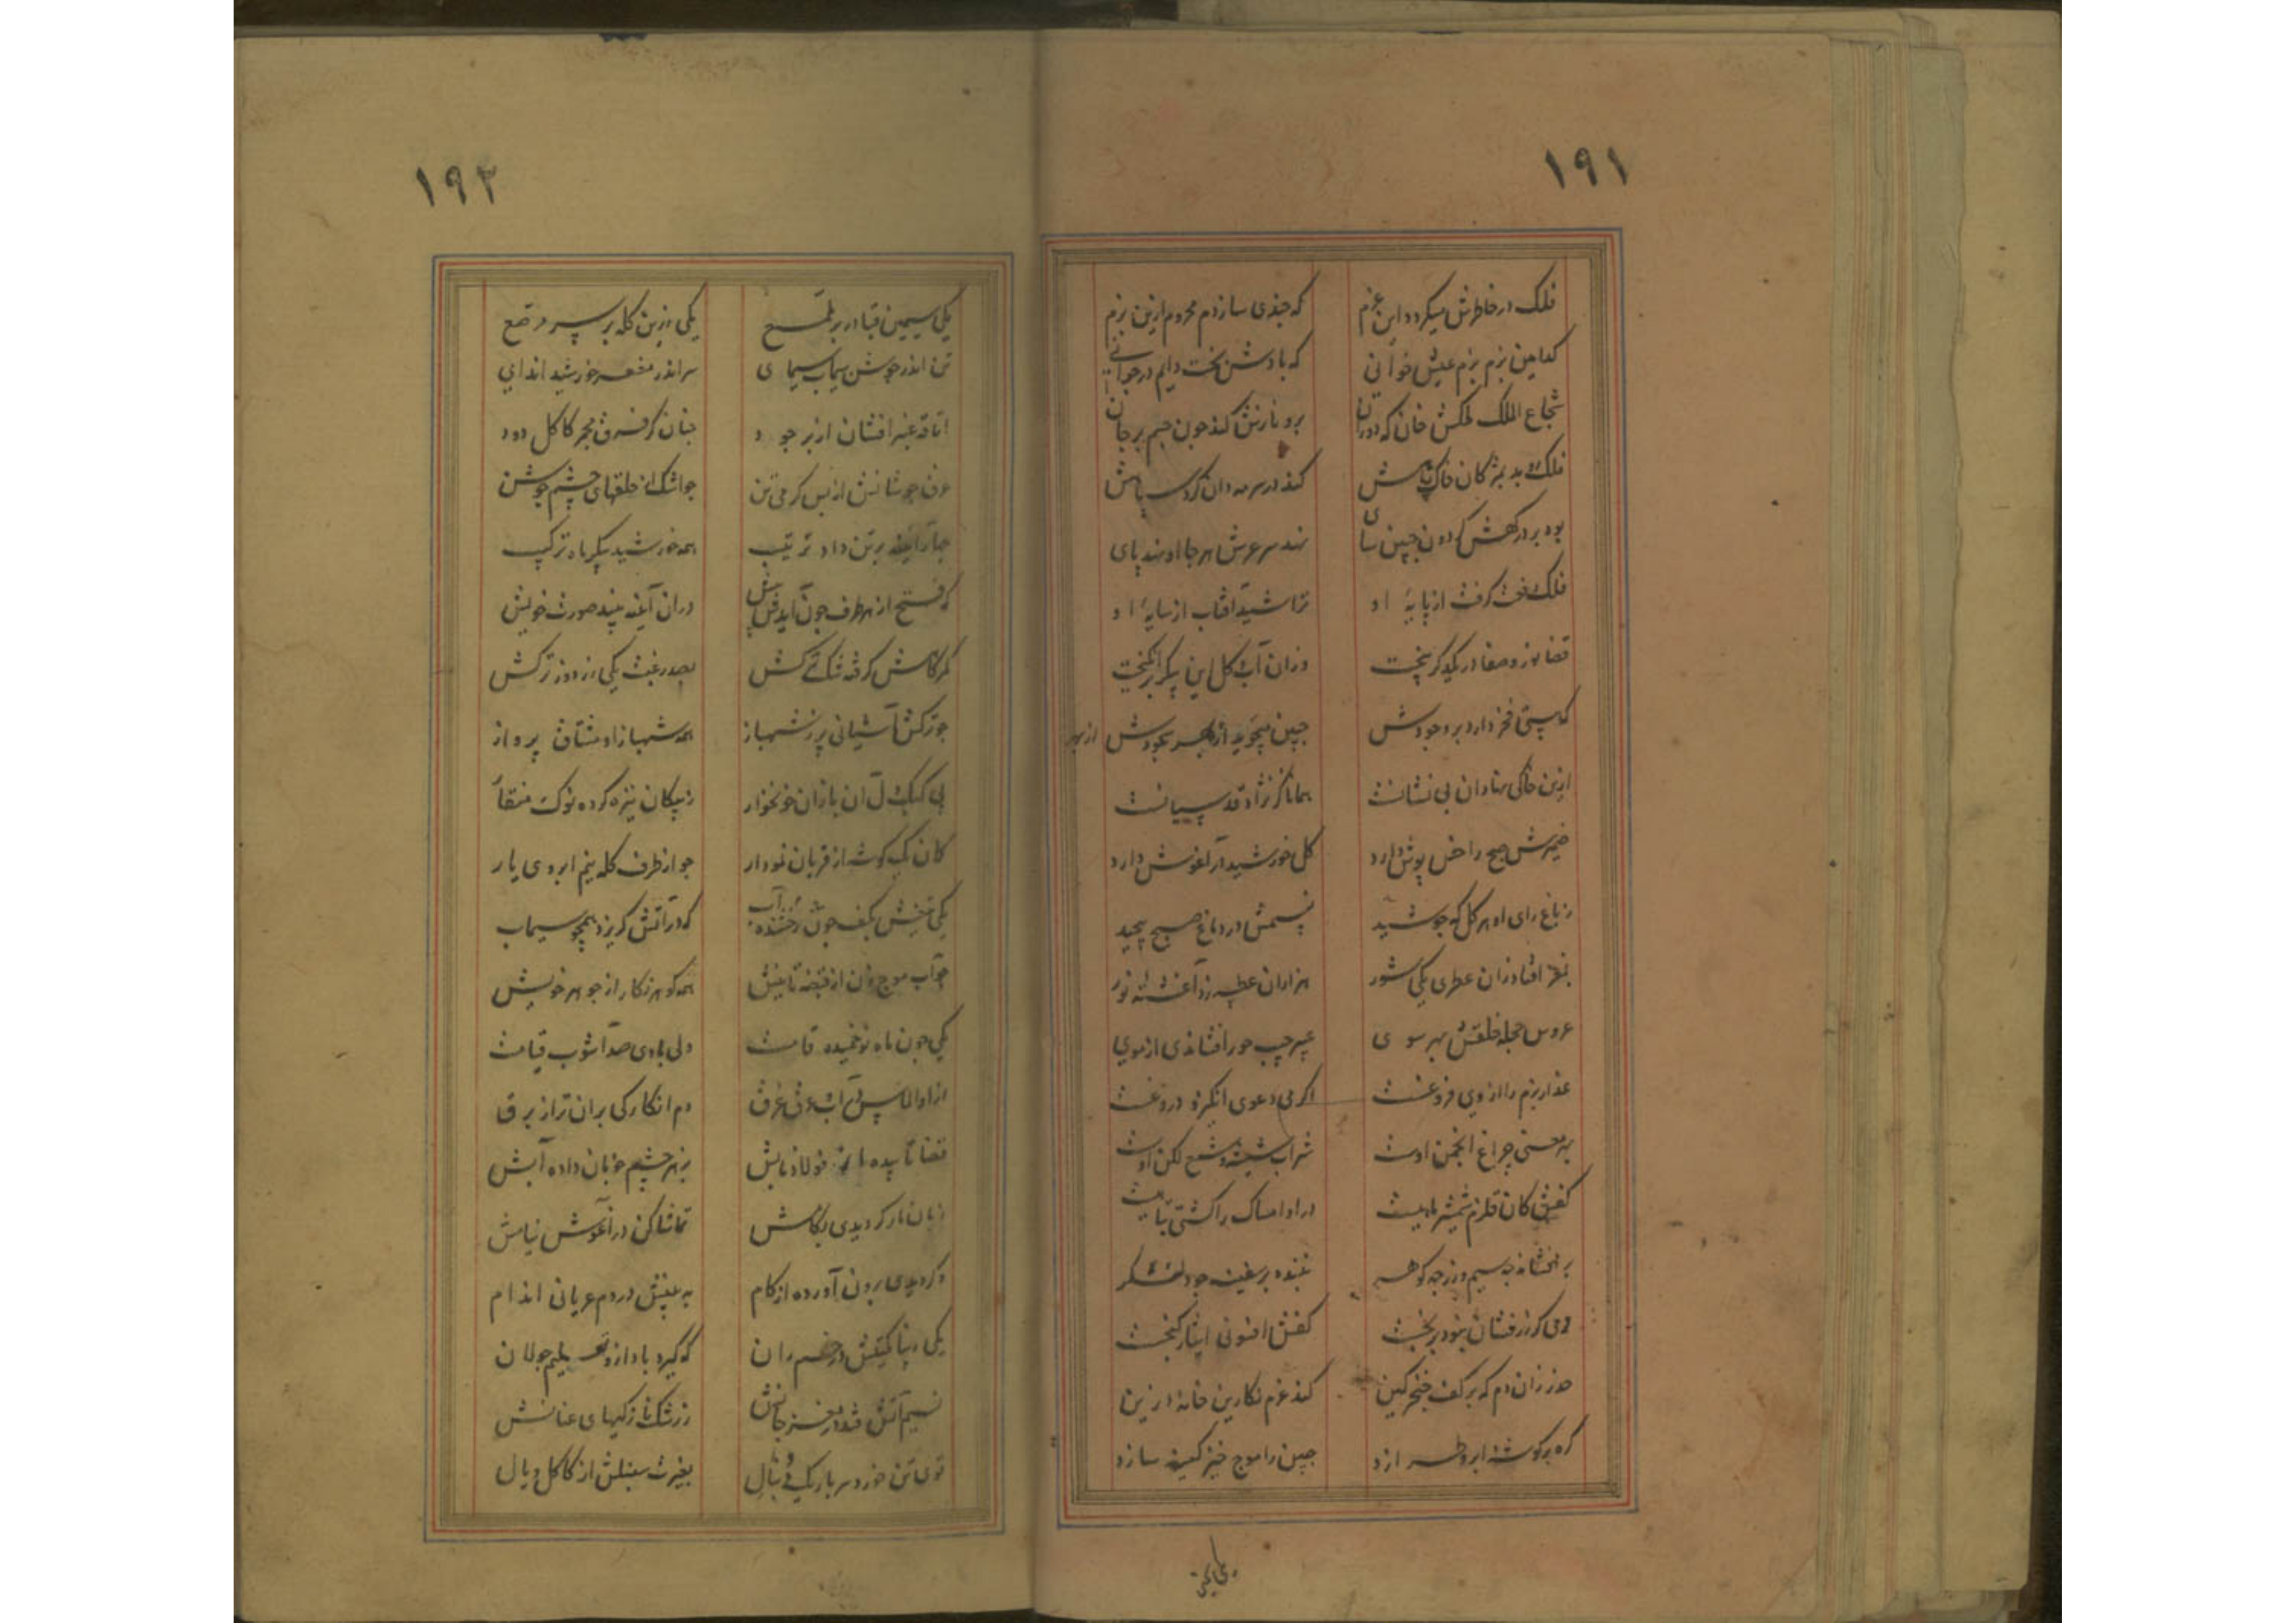 ١٩١
فلک در خاطرش میکرد این عزم
که جغدی سازدم محروم ازین بزم
کدامین بزم بزم عیش خوانی
که بادش بخت دایم در جوانی
شجاع الملک خان که دوران
برو نازش کند چون جسم بر جان
فلک بمژکان خاک
کند در سرمه دان کرد سپاهش
بود بر درکهش کردون جبین سای
نهد سر عرش هر جا او نهد پای
فلک کرفت از پایهٔ او
تراشید آفتاب از سایهٔ او
قضا در یکدکر بیخت
وزان آب کل این پیکر انکیخت
که هستی فخر دارد بر وجودش
جبین از بهر سجودش
ازین خاکی نهادان بی نشانست
همانا کز نژاد قدسیانست
ضمیرش صبح را خس پوش دارد
کل خورشید در آغوش دارد
ز باغ رای او هر کل که جوشید
نسیمش در دماغ صبح پیچید
بمغز افتاد زان عطری یکی شور
هزاران عطسه زد آغشته نور
عروس حجله خلقش بهر سوی
عبیر جیب حور افشاندی از موی
عذار بزم را از وی فروغست
اکر می دعوی انکیزد دروغست
بمعنی چراغ انجمن اوست
شراب شیشه و شمع لکن اوست
کفش کان قلزم شمشیر ماهیست
در او امساک را کشتی تباهیست
برافشاند چه سیم و زر چه کوهر
کفش افسونی ایثار کنجست
حذر زان دم که بر کف خنجر کین
کند عزم نکارین خانه زین
کره بر کوشه ابرو طرازد
جبین را موج خیز کینه سازد
١٩٢
یکی سیمین قبا در بر ملمع
یکی زرین کله بر سر مرصع
تن اندر جوشن سیماب سیمای
سر اندر مغفر خورشید اندای
اتاقه عنبر افشان از بر خود
چنان کز فرق مجمر کاکل دود
عرق جوشانش از بس کرمی تن
چو اشک از حلقهای چشم جوشن
چار آینه بر تن داد ترتیب
همه خورشید پیکر ماه ترکیب
که فتح از هر طرف چون آید پیش
در آن آینه بیند صورت خویش
کمرکاهش کرفته تنک ترکش
بصد رغبت یکی زردوز ترکش
چو ترکش آشیانی پر ز شهباز
همه شهباز او مشتاق پرواز
پی کبک دل آن بازان خونخوار
ز پیکان تیزه کرده نوک منقار
کمان یک کوشه از قربان نمودار
چو از طرف کله نیم ابروی یار
یکی تیغش بکف چون رخشنده آب
که در آتش کریزد همچو سیماب
چو آب موج زن از قبضه تا نیش
همه کوهر نکار از جوهر خویش
یکی چون ماه نو خمیده قامت
ولی با وی صد آشوب قیامت
از او الماس در آب عرق غرق
دم انکارکی بران تر از برق
قضا تابیده از فولاد نابش
بزهر چشم خوبان داده آبش
زبان مار کر دیدی بکامش
تماشا کن در آغوش نیامش
ور کر دیدی برون آورده از کام
به بینش در دم عریانی اندام
که کیرد باد ازو تعلیم جولان
نسیم آتش در مغز جانش
ز رشک نازکیهای عنانش
قوی تن خورد سر باریک دنبال
بغیرت سنبلش از کاکل و یال